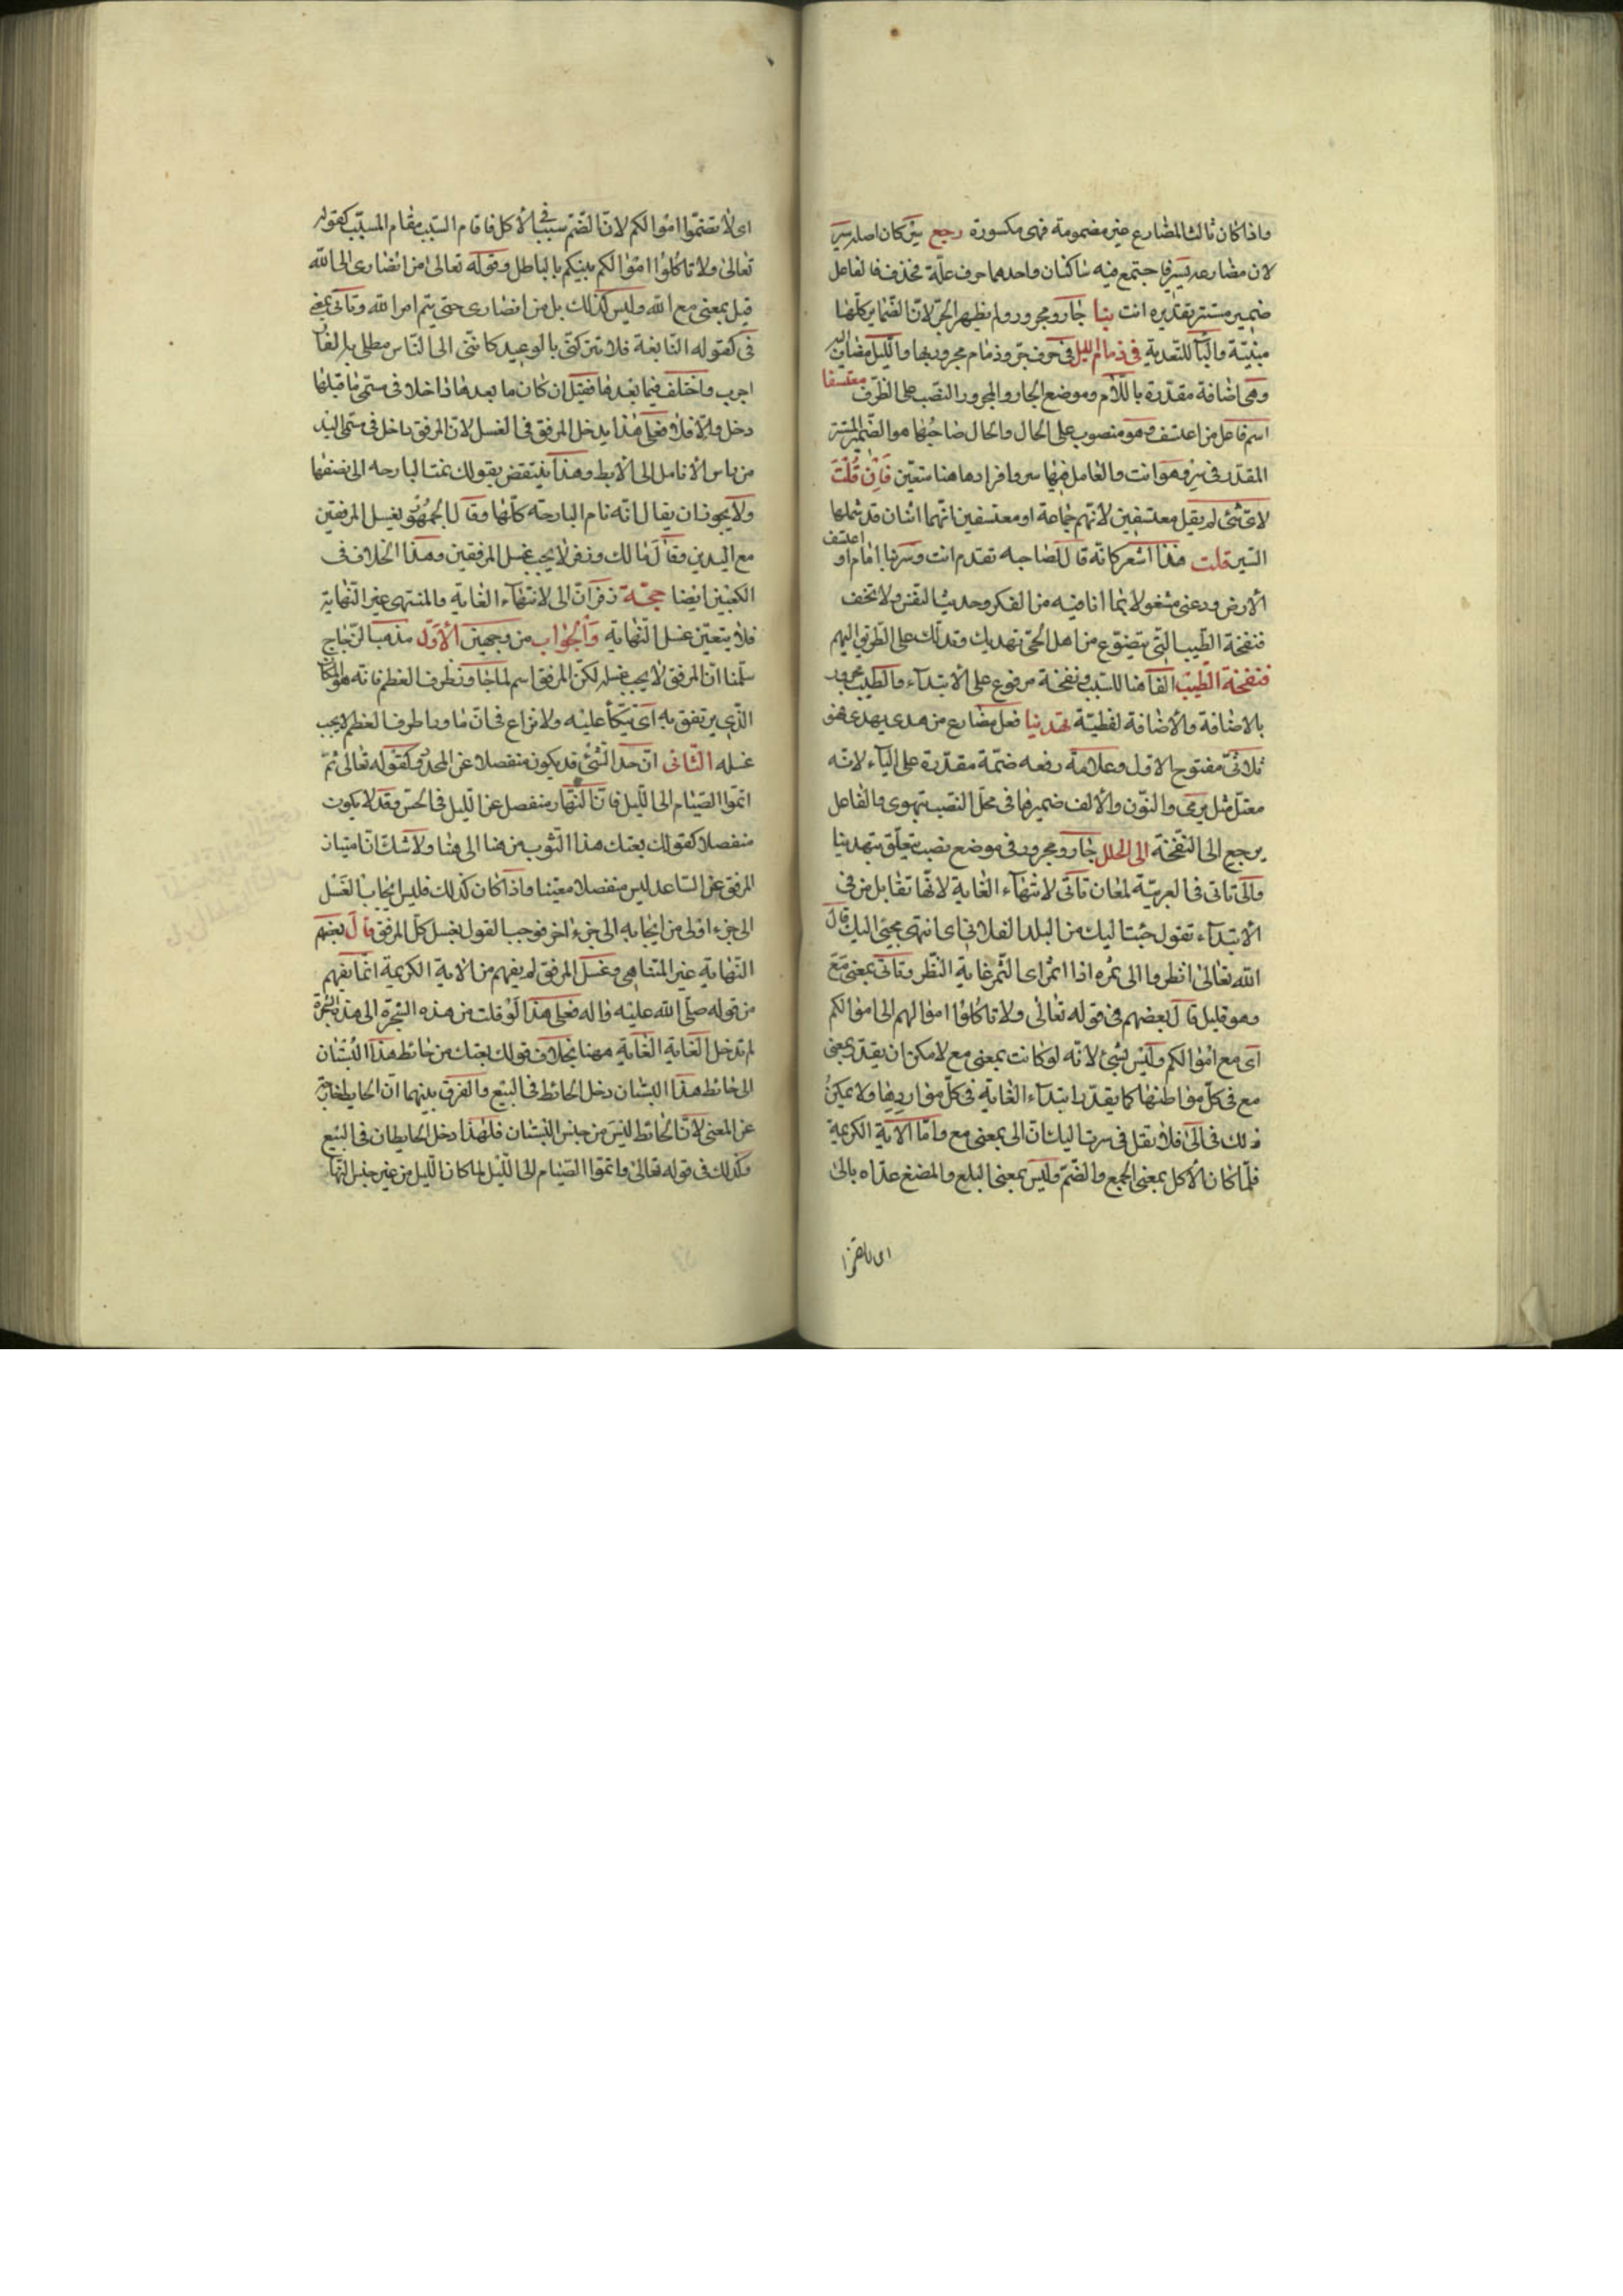 واذا كان ثالث المضارع غير مضمومة فهى مكسورة رجع سر كان اصله سير
لان مضارعه يسير فاجتمع فيه ساكنان واحدهما حرف علّة فحذف فالفاعل
ضمير مستتر تقديره انت بنا جار ومجرور ولم يظهر الجرّ لانّ الضّماير كلّها
مبنيّة والبآ للتعدية فى ذمام الليل فى حرف جرّ وذمام مجرور بها والليل مضاف اليه
وهى اضافة مقدّرة باللّام وموضع الجار والمجرور النصب على الظرف معتسفا
اسم فاعل من اعتسف وهو منصوب على الحال والحال صاحبها هو الضّمير المستتر
المقدّر فى سر وهو انت والعامل فيها سر وافرادها هنا متعيّن فَاِنْ قُلْتَ
لاىّ شئ لم يقل معتسفين لانهم جماعة او معتسفين انهما اثنان قد شملهما
السّير قلت هذا اشعر كانّه قال لصاحبه تقدم انت وسر بنا امام او اعتسف
الأرض ودعنى مشغولا بما انا فيه من الفكر وحديث النفس ولا تخف
فنفخة الطّيب الّتى يتضوّع من اهل الحىّ تهديك وتدلّك على الطّريق اليهم
فنفخة الطّيب الفآ هنا للسّبب ونفخة مرفوع على الابتدآء والطّيب مجرور
بالاضافة والأضافة لفظيّة تهدينا فعل مضارع من هدى يهدى فهو
ثلاثىّ مفتوح الاوّل وعلامة رفعه ضمّة مقدّرة على اليآء لانّه
معتلّ مثل يرمى والنّون والألف ضمير فى محلّ النصب بتهدى والفاعل
يرجع الى النفخة الى الحلل جار ومجرور فى موضع نصب يتعلّق بتهدينا
والى تاتى فى العربيّة لمعان تأتى لانتهآء الغاية لانّها تقابل من فى
الأبتدآء تقول جئت اليك من البلد الفلانى اى انتهى مجيئ اليك قال
الله تعالى انظروا الى ثمره اذا اثمر اى الثّمر غاية النّظر وتاتى بمعنى مَعَ
وهو قليل قال بعضهم فى قوله تعالى ولا تاكلوا اموالهم الى اموالكم
اى مع اموالكم وليس بشئ لانّه لو كانت بمعنى مع لامكن ان يقدّر بمعنى
مع فى كلّ مواطنها كما يقدّر ابتدآء الغاية فى كلّ مواردها ولا يمكن
ذلك فى الى فلا تقل فى سرت اليك انّ الى بمعنى مع وامّا الآية الكريمة
فلمّا كان الأكل بمعنى الجمع والضّمّ وليس بمعنى البلع والمضغ عدّاه بالى
اى لا تضمّوا
اى لا تضمّوا اموالكم لانّ الضّمّ سبب فى الأكل فاقام السّبب مقام المسبّب كقوله
تعالى ولا تاكلوا اموالكم بينكم بالباطل وقوله تعالى من انصارى الى الله
قيل بمعنى مع الله وليس كذلك بل من انصارى حتى يتم امر الله وتأتى بمعنى
فى كقوله النّابغة فلا تتركنّى بالوعيد كاننى الى النّاس مطلى به القآر
اجرب واختلف فيما بعدها فقيل ان كان ما بعدها داخلا فى مسمّى ما قبلها
دخل والّا فلا فعلى هذا يدخل المرفق فى الغسل لانّ المرفق داخل فى مسمّى اليد
من راس الأنامل الى الأبط وهذا ينتقض بقولك نمت البارحه الى نصفها
ولا يجوز ان يقال انّه نام البارحة كلّها وقال الجمهور بغسل المرفقين
مع اليدين وقال مالك وزفر لا يجب غسل المرفقين وهذا الخلاف فى
الكعبين ايضا حجّة زفر انّ الى لانتهآء الغاية والمنتهى غير النّهاية
فلا يتعيّن غسل النّهاية والجواب من وجهين الأوّل مذهب الزّجاج
سلّمنا انّ المرفق لا يجب غسله لكنّ المرفق اسم لما جاوز طرف العظم فانّه هو المكان
الّذى يرتفق به اى يتّكأ عليه ولا نزاع فى انّ ما ورا طرف العظم لا يجب
غسله الثّانى انّ حدّ الشّئ قد يكون منفصلا عن المحدود كقوله تعالى ثمّ
اتمّوا الصّيام الى اللّيل فانّ النّهار منفصل عن اللّيل فى الحسّ وقد لا يكون
منفصلا كقولك بعتك هذا الثّوب من هنا الى هنا ولا شكّ انّ امتياز
المرفق عن السّاعد ليس منفصلا معيّنا واذا كان كذلك فليس ايجاب الغسل
الى جزء اولى من ايجابه الى جزء اخر فوجب القول بغسل كلّ المرفق قال بعضهم
النّهاية غير المتناهى وغسل المرفق لم يفهم من الآية الكريمة انّما يفهم
من قوله صلّى الله عليه واله فعلى هذا لو قلت من هذه الشّجرة الى هذه الشجرة
لم تدخل الغاية الغاية ههنا بخلاف قولك بعتك من حائط هذا البستان
الى حائط هذا البستان دخل الحائط فى البيع والفرق بينهما انّ الحايط خارج
عن المعنى لانّ الحائط ليس من جنس البستان فلهذا دخل الحايطان فى البيع
وكذلك فى قوله تعالى واتموا الصّيام الى اللّيل لما كان اللّيل من غير جنس النّهار